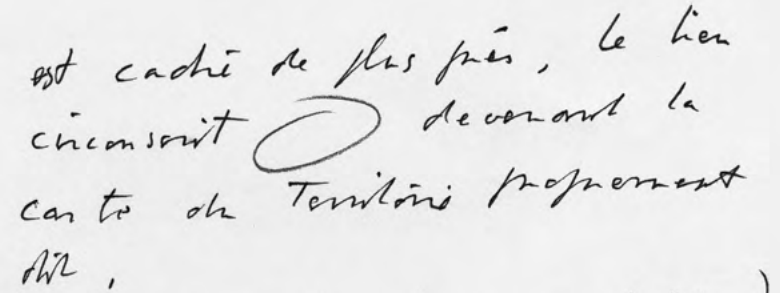 est cadré de plus près, le lieu
circonscrit devenant la
carte du Territoire proprement
dit,